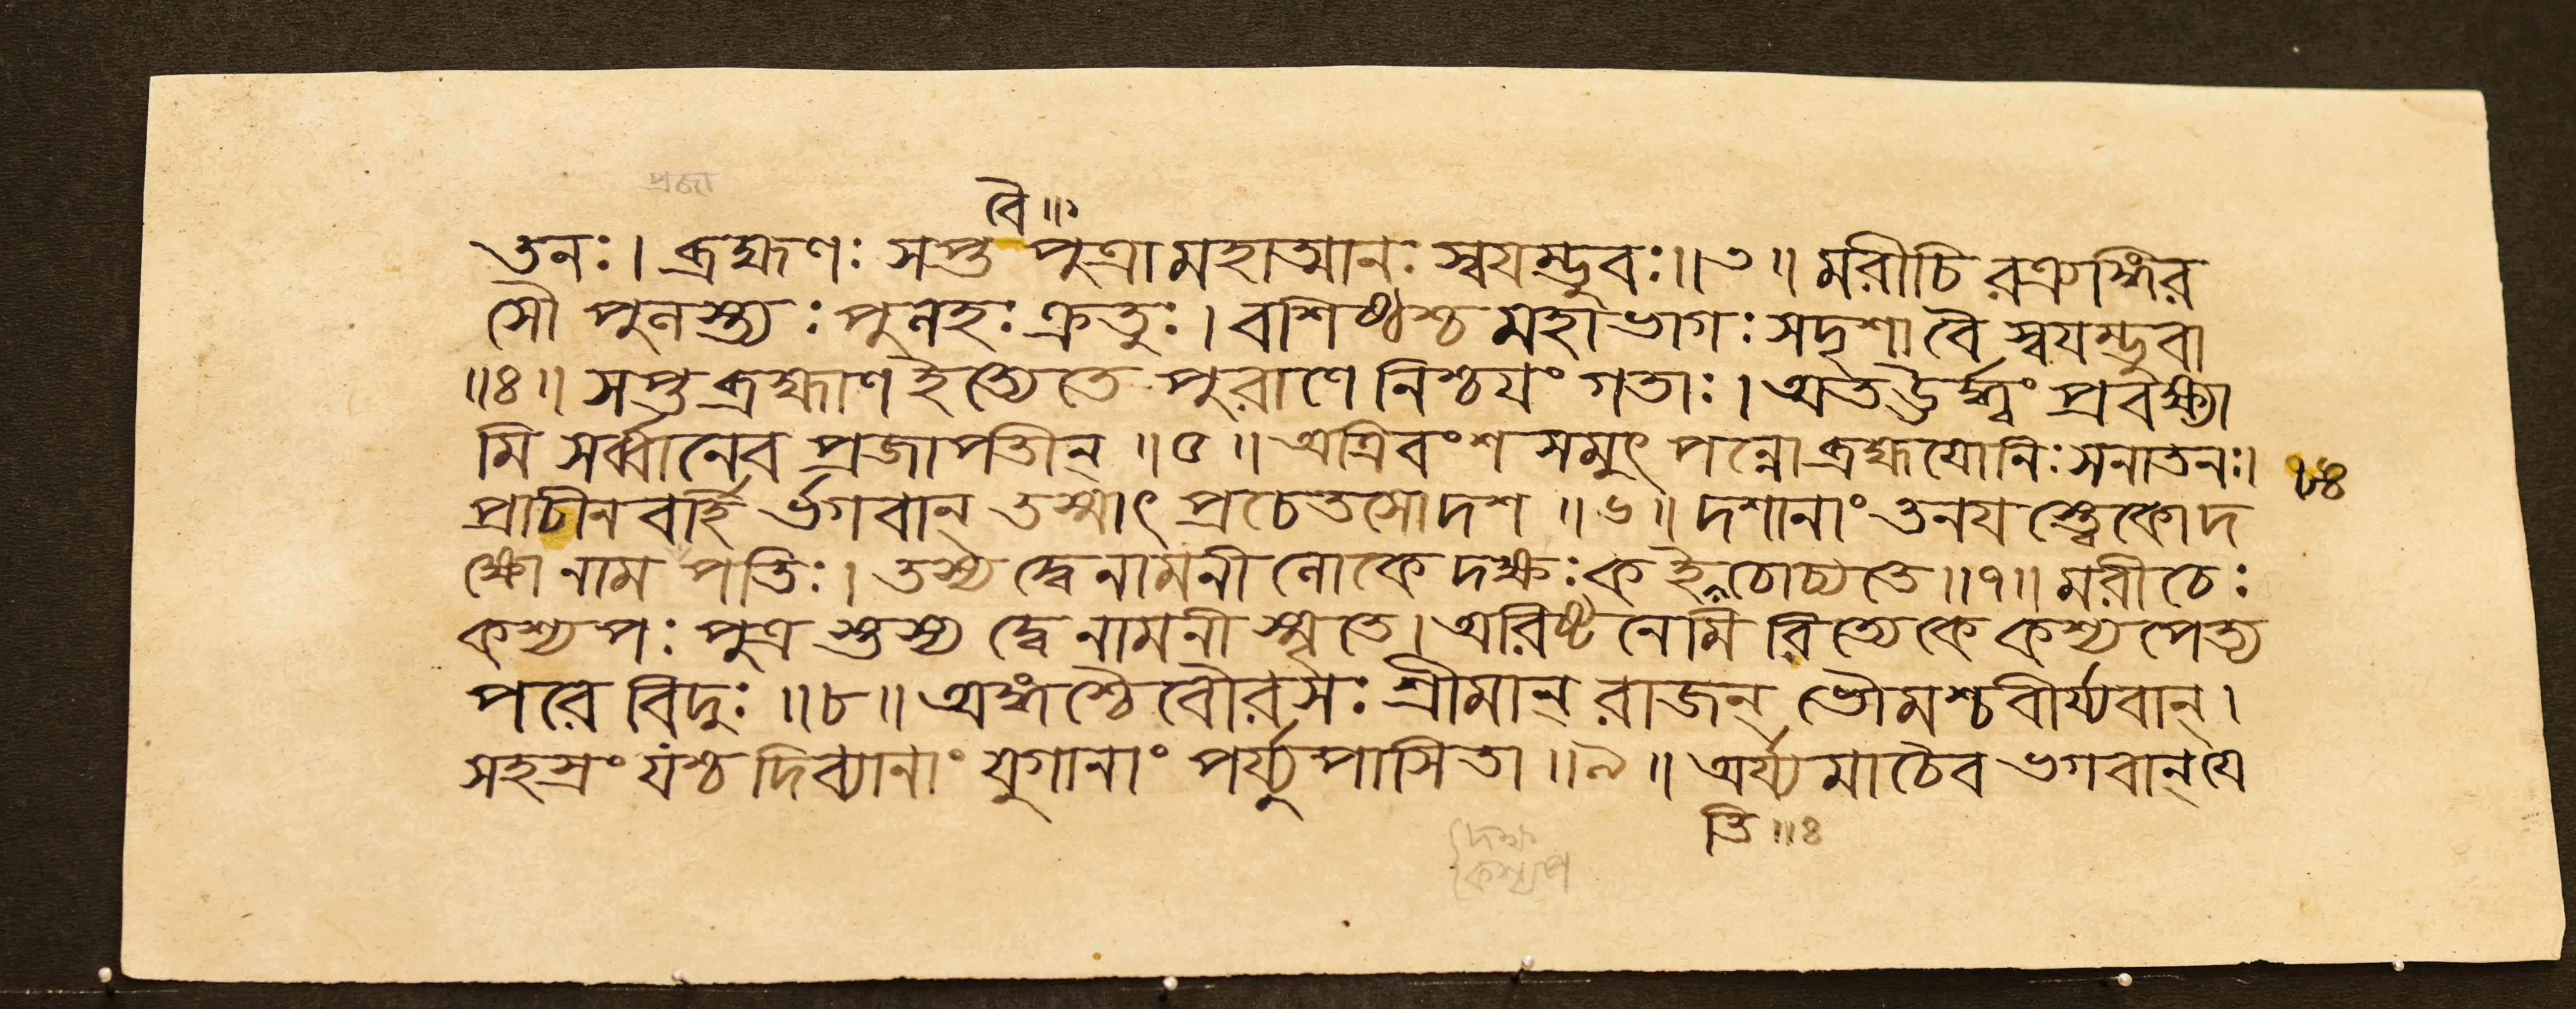 প্রজা
বৈ॥১
তনঃ। ব্রহ্মণঃ সপ্ত পুত্রা মহাত্মানঃ স্বয়ম্ভুবঃ॥৩॥ মরীচি রত্র্যঙ্গির
সৌ পুলস্ত্যঃ পুলহঃ ক্রতুঃ। বশিষ্ঠশ্চ মহাভাগঃ সদৃশা বৈ স্বয়ম্ভুবা
॥৪॥ সপ্ত ব্রহ্মাণ ইত্যেতে পুরাণে নিশ্চয়ং গতাঃ। অত ঊর্দ্ধ্বং প্রবক্ষ্যা
মি সর্ব্বানেব প্রজাপতীন্ ॥৫॥ অত্রিবংশ সমুৎপন্নো ব্রহ্মযোনিঃ সনাতনঃ।
প্রাচীন বর্হি র্ভগবান্ তস্মাৎ প্রচেতসো দশ ॥৬॥ দশানাং তনয স্ত্বেকো দ
ক্ষো নাম পতিঃ। তস্য দ্বে নামনী লোকে দক্ষঃ ক ইতি চোচ্যতে॥৭॥ মরীচেঃ
কশ্যপঃ পুত্র স্তস্য দ্বে নামনী স্মৃতে। অরিষ্ট নেমি রিত্যেকে কশ্যপেত্য
পরে বিদুঃ ॥৮॥ অঙ্গশ্চৈবৌরসঃ শ্রীমান্ রাজন্ ভৌমশ্চ বীর্য্যবান্।
সহস্রং যশ্চ দিব্যানাং যুগানাং পর্য্যুপাসিতা ॥৯॥ অর্য্যমা চৈব ভগবান্ যে
তি॥৪
দক্ষ
কশ্যপ